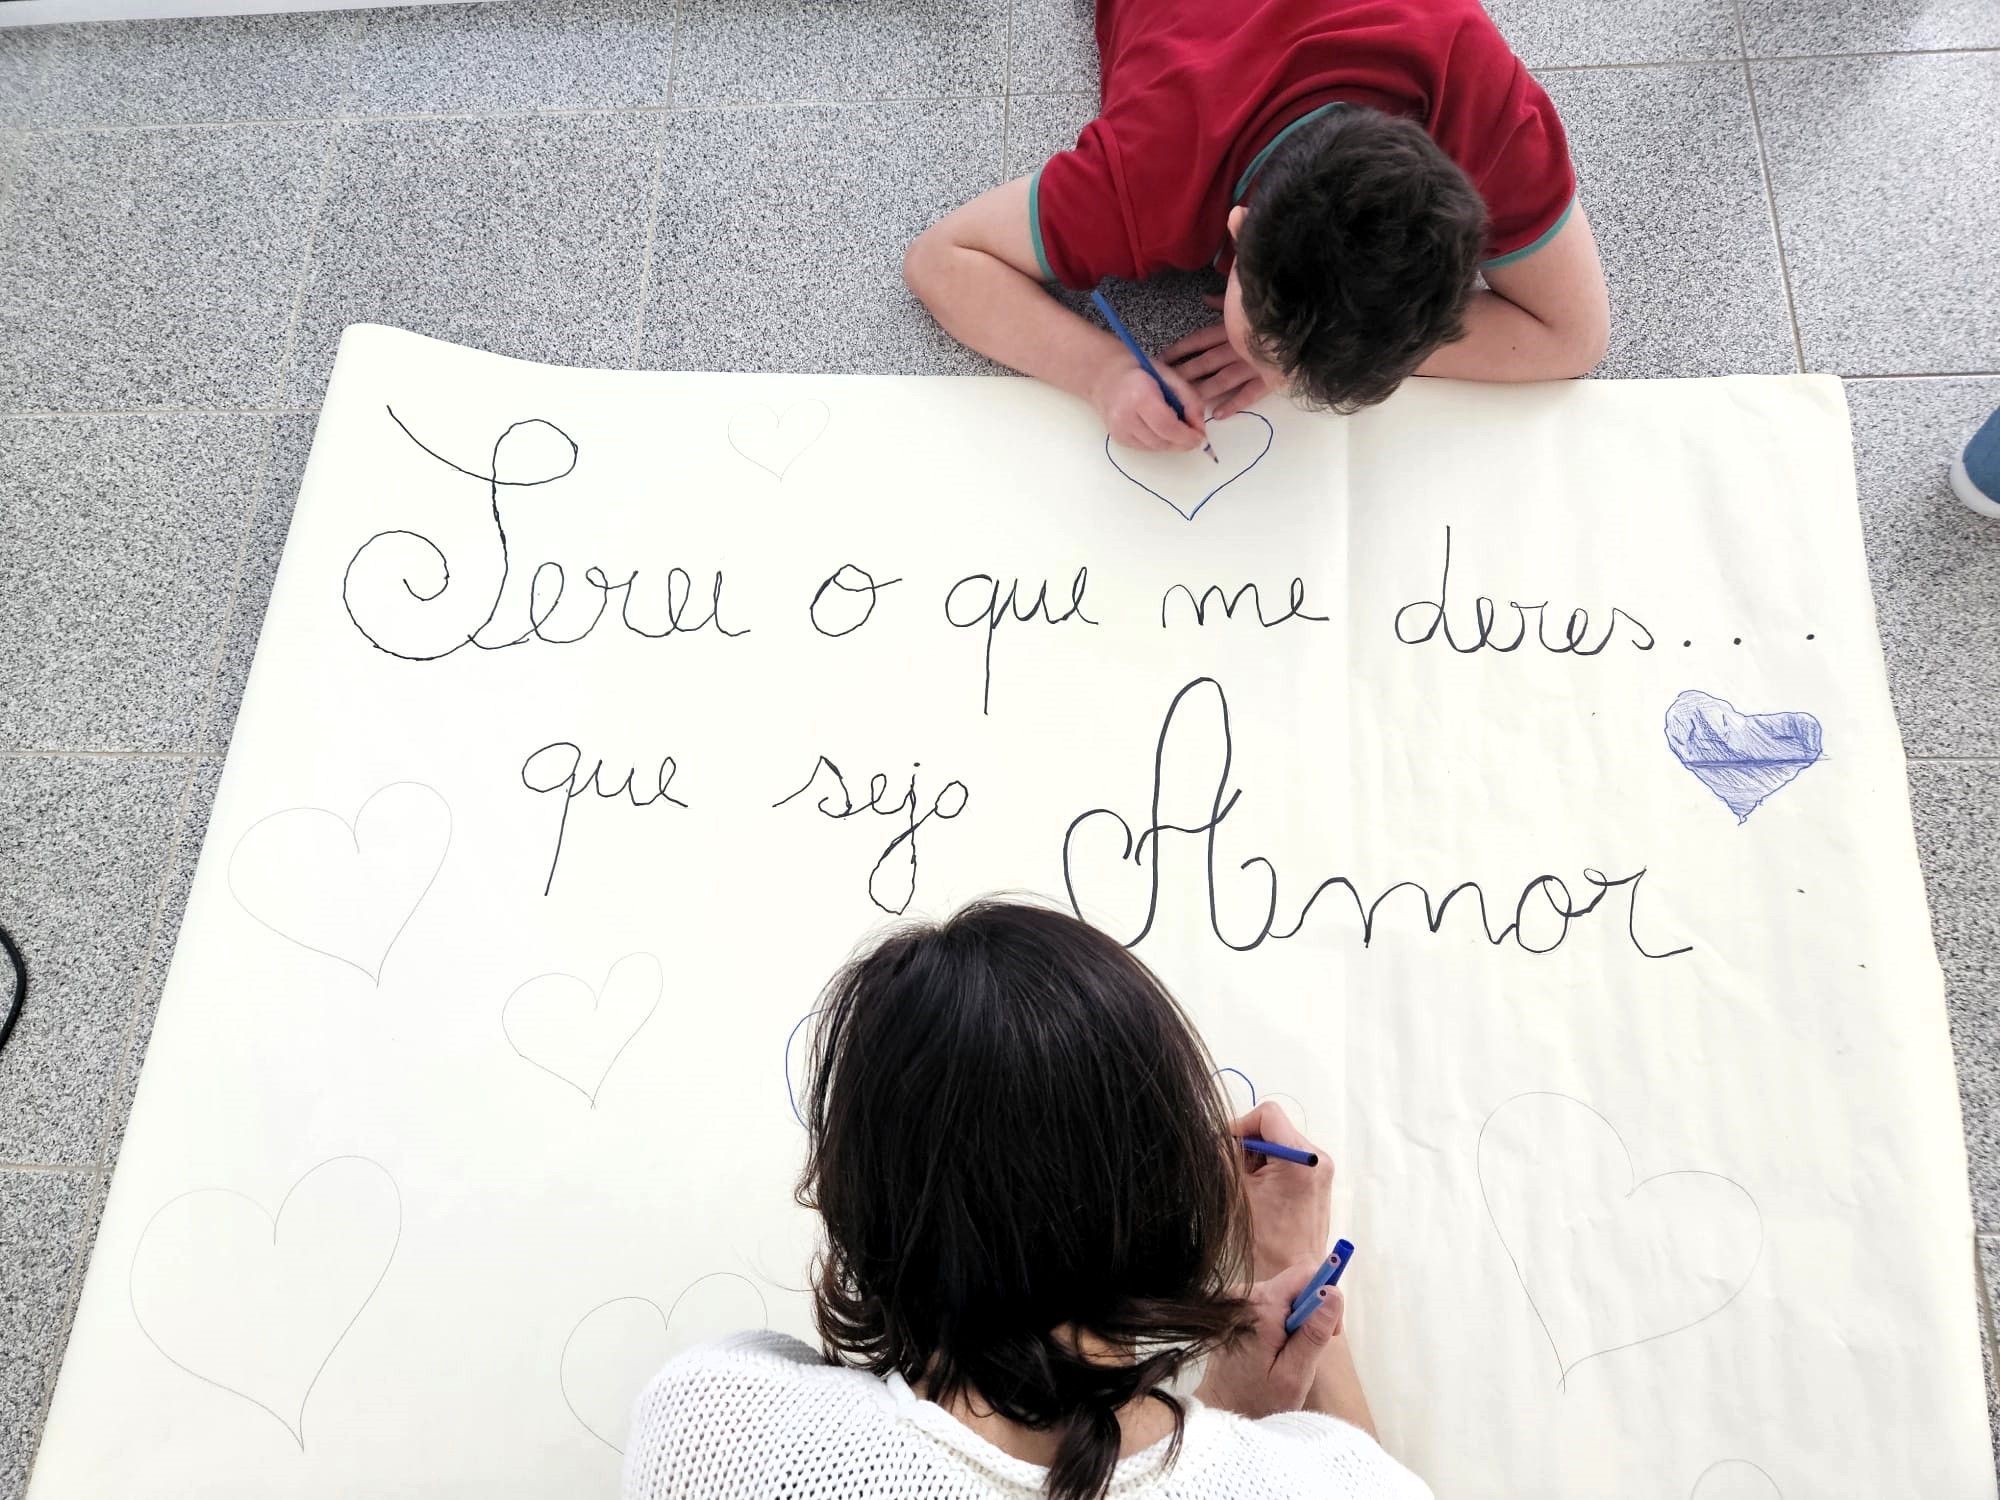 Serei o que me deres...
que sejo Amor